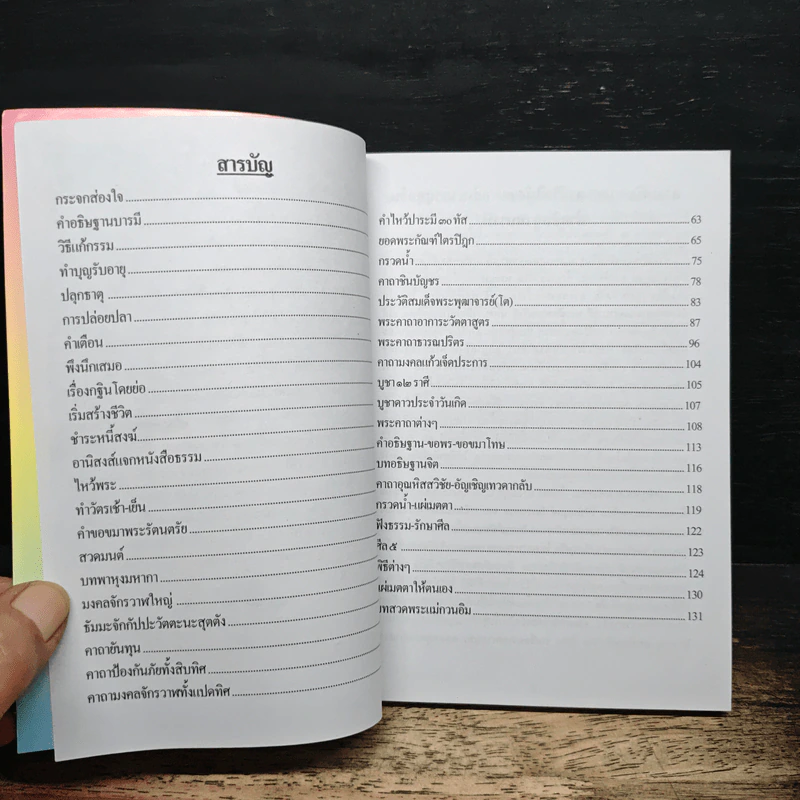 สารบัญ
กระจกส่องใจ
คำอธิษฐานบารมี
วิธีแก้กรรม
ทำบุญรับอายุ
ปลุกธาตุ
การปล่อยปลา
คำเตือน
พึงนึกเสมอ
เรื่องกฐินโดยย่อ
เริ่มสร้างชีวิต
ชำระหนี้สงฆ์
อานิสงส์แจกหนังสือธรรม
ไหว้พระ
ทำวัตรเช้า-เย็น
คำขอขมาพระรัตนตรัย
สวดมนต์
บทพาหุงมหากา
มงคลจักรวาฬใหญ่
ธัมมะจักกัปปะวัตตะนะสุตตัง
คาถายันทุน
คาถาป้องกันภัยทั้งสิบทิศ
คาถามงคลจักรวาฬทั้งแปดทิศ
คำไหว้ปาระมี ๓๐ ทัส 63
ยอดพระกัณฑ์ไตรปิฎก 65
กรวดน้ำ 75
คาถาชินบัญชร 78
ประวัติสมเด็จพระพุฒาจารย์(โต) 83
พระคาถาอาการะวัตตาสูตร 87
พระคาถาธารณปริตร 96
คาถามงคลแก้วเจ็ดประการ 104
บูชา ๑๒ ราศี 105
บูชาดาวประจำวันเกิด 107
พระคาถาต่างๆ 108
คำอธิษฐาน-ขอพร-ขอขมาโทษ 113
บทอธิษฐานจิต 116
คาถาอุณหิสสวิชัย-อัญเชิญเทวดากลับ 118
กรวดน้ำ-แผ่เมตตา 119
ฟังธรรม-รักษาศีล 122
ศีล ๕ 123
พิธีต่างๆ 124
แผ่เมตตาให้ตนเอง 130
บทสวดพระแม่กวนอิม 131